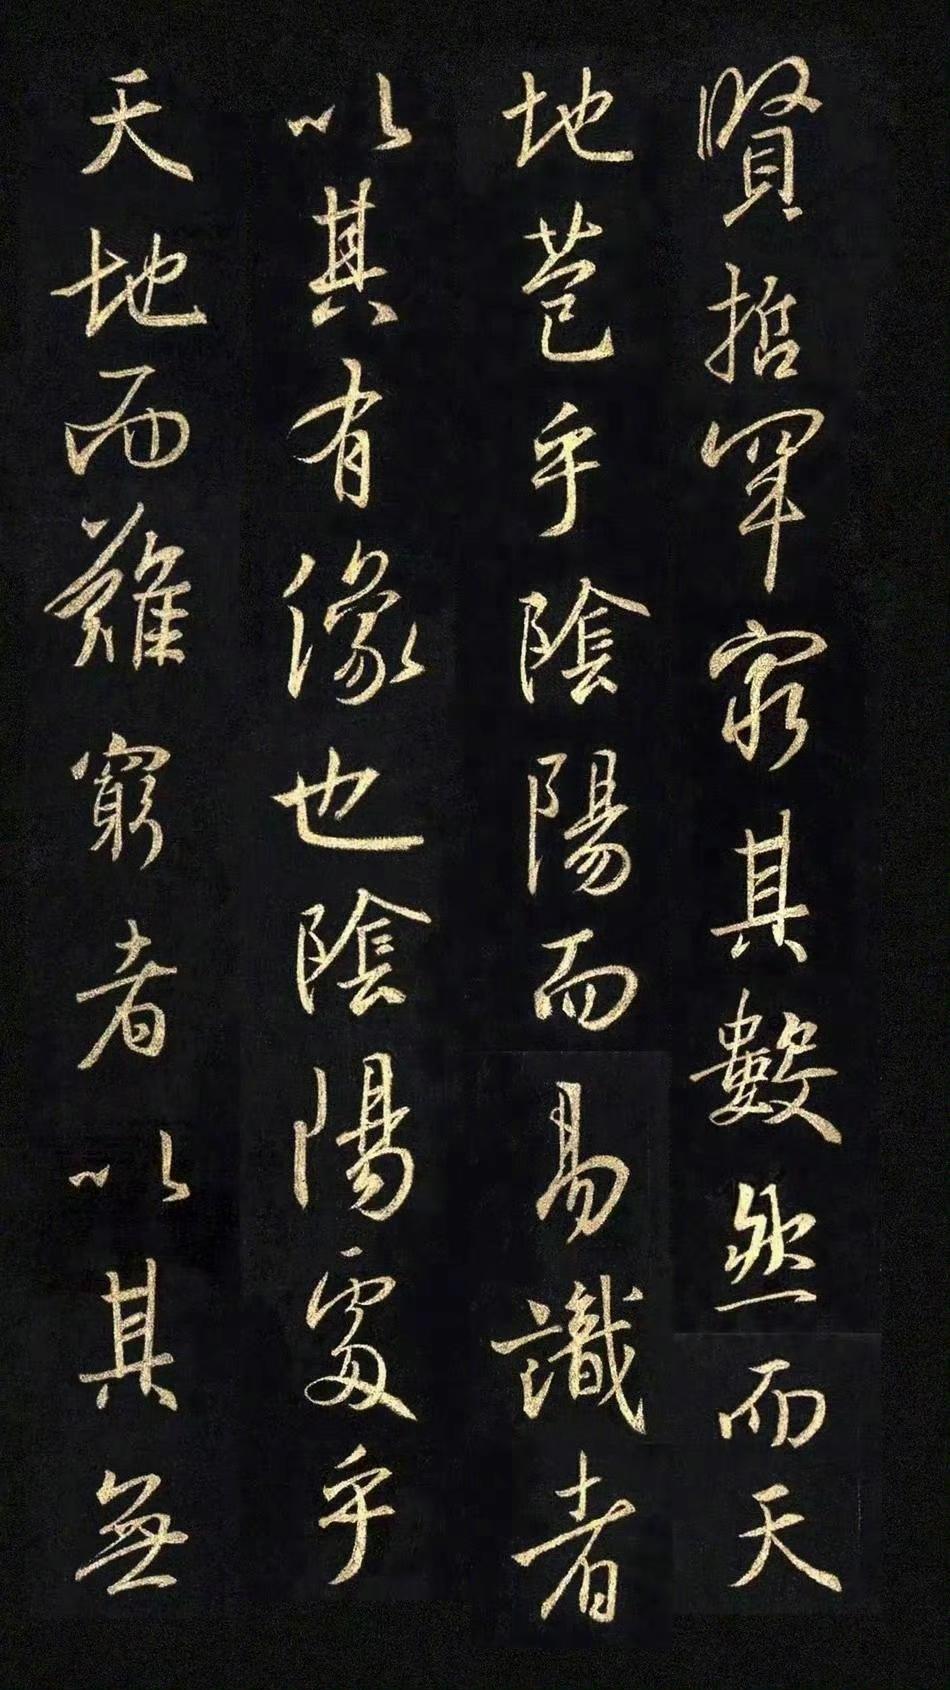 賢哲罕窮其數然而天
地苞乎陰陽而易識者
以其有像也陰陽處乎
天地而難窮者以其無